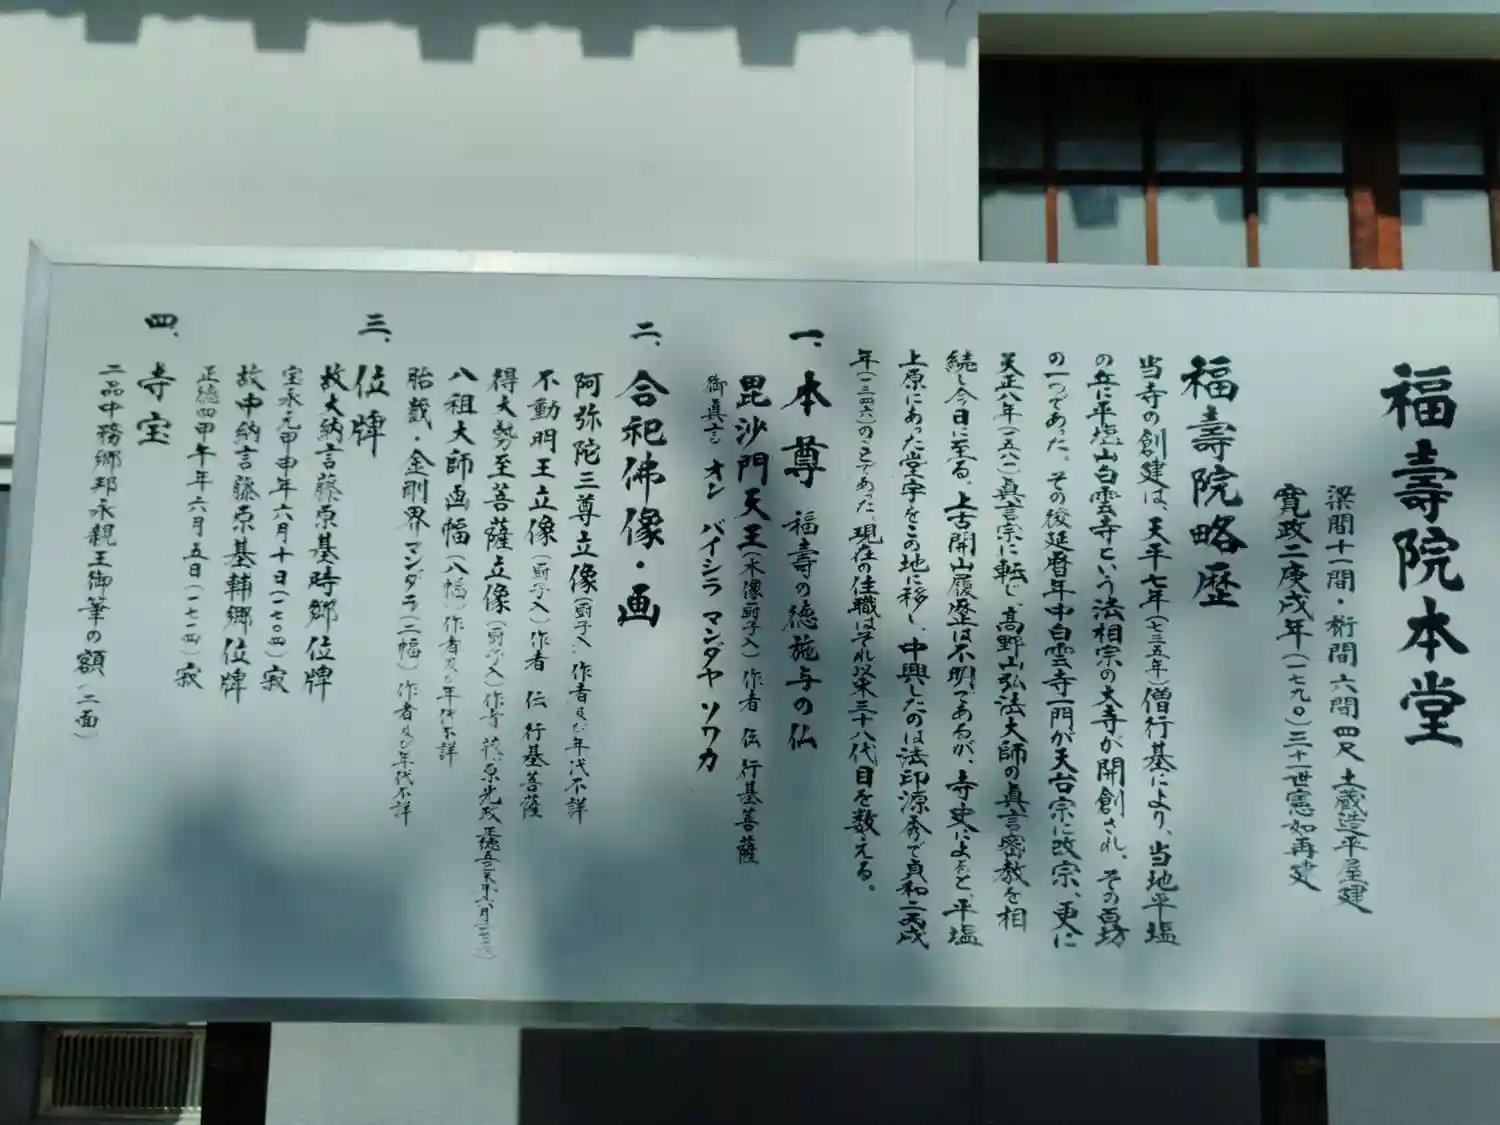 福壽院本堂
梁間十一間・桁間六間四尺 土蔵造平屋建
寛政二庚戌年(一七九〇)三十一世憲如再建
福壽院略歴
当寺の創建は、天平七年(七三五年)僧行基により、当地平塩
の丘に平塩山白雲寺という法相宗の大寺が開創され、その百坊
の一つであった。その後延暦年中白雲寺一門が天台宗に改宗、更に
天正八年(一五八〇)眞言宗に転じ、高野山弘法大師の眞言密教を相
続し今日に至る。上古開山履歴は不明であるが、寺史によると、平塩
上原にあった堂宇をこの地に移し、中興したのは法印源秀で貞和二丙戌
年(一三四六)のことであった。現在の住職はそれ以来三十八代目を数える。
一、本尊 福壽の徳施与の仏
毘沙門天王(木像厨子入)作者 伝 行基菩薩
御眞言 オン バイシラ マンダヤ ソワカ
二、合祀佛像・画
阿弥陀三尊立像(厨子入)作者及び年代不詳
不動明王立像(厨子入)作者 伝 行基菩薩
得大勢至菩薩立像(厨子入)作者 藤原光政
八祖大師画幅(八幅)作者及び年代不詳
胎蔵・金剛界マンダラ(二幅)作者及び年代不詳
三、位牌
故大納言藤原基時郷位牌
宝永元甲申年六月十日(一七〇四)寂
故中納言藤原基輔郷位牌
正徳四甲午年六月五日(一七一四)寂
四、寺宝
二品中務郷邦永親王御筆の額(二面)